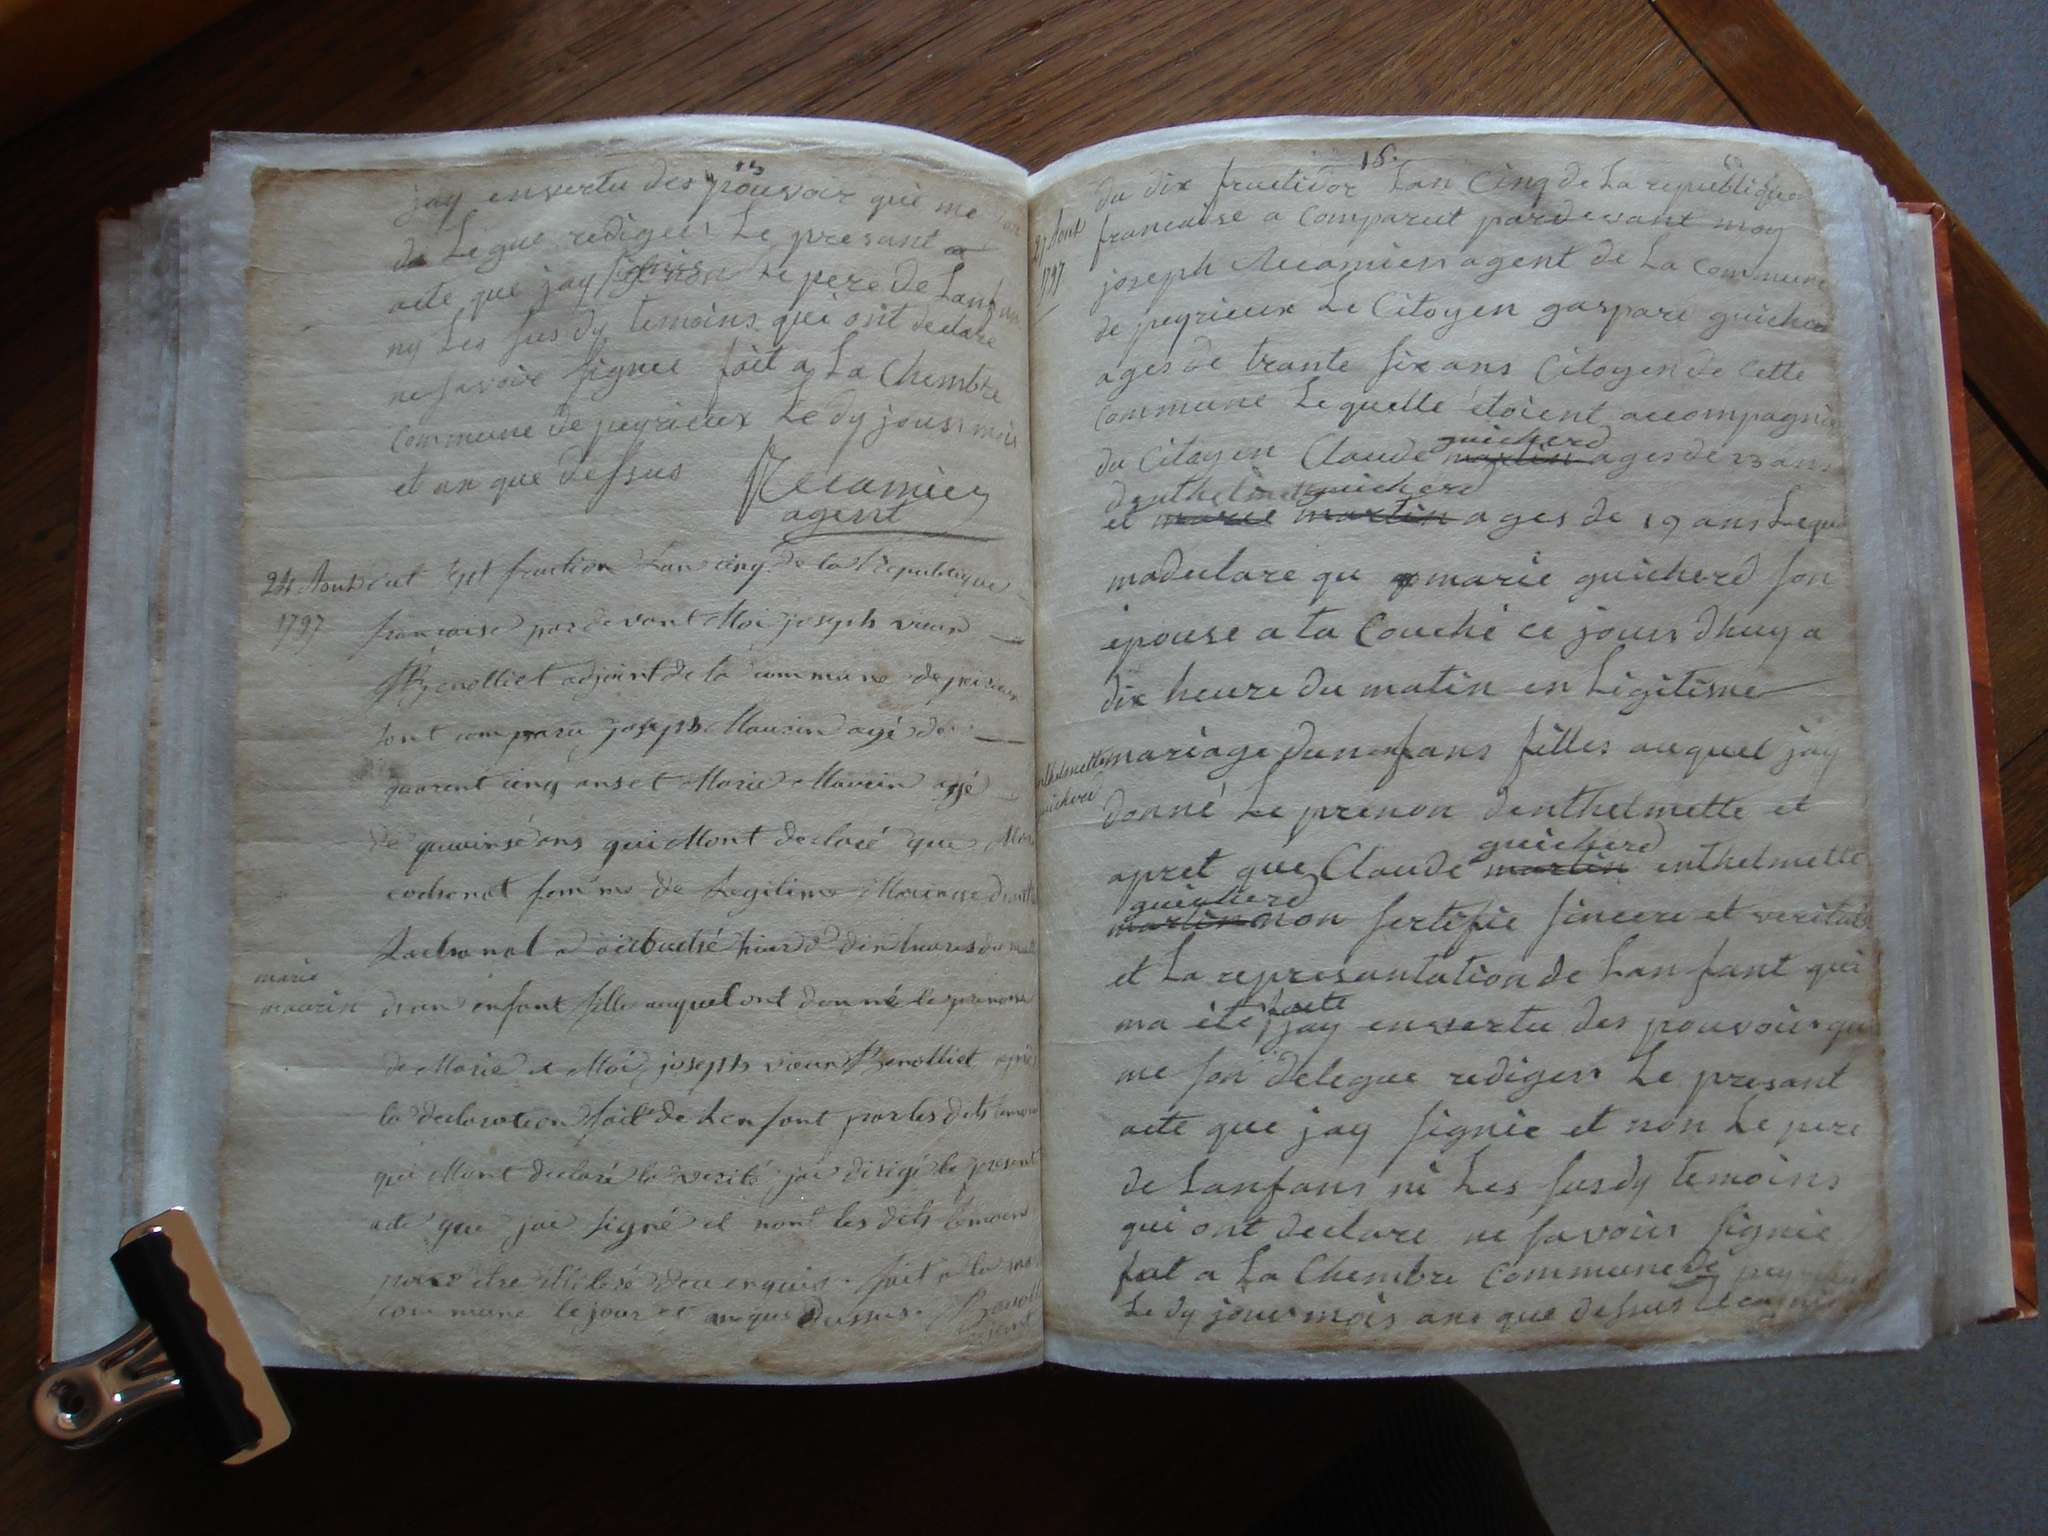 jay envertu des pouvoir qui me
de Legue rediger Le presant
acte que jay signie non Le pere de Lanfan
ny Les sus dy temoins qui ont declare
ne savoir signee fait a La Chembre
commune de peyrieux Le dy jours mois
et an que dessus Recamier
agent
24 Aout sept fructidor Lan cinq de la Republique
1797 francaise par devant Moi joseph
adjoint de la commune de
sont comparu joseph Maurin agé de
quarent cinq ans et Marie Maurin agé
de ans qui Mont declaré que
femme de Legitime
a acouché hier dix heures du
marie
maurin d'un enfant fille auquel ont donné le prenom
de Marie et Moi joseph
la declaration fait de Lenfant par les dits
qui Mont declaré la verité jai dirigé le present
acte que jai signé et nont les dits temoins
pour de ce enquis. fait a la
commune le jour et an que dessus.
16.
du dix fructidor Lan Cinq de La republique
27 Aout francaise a comparut pardevant moy
1797 joseph Recamier agent de La Commune
de peyrieux Le Citoyen gaspard guicherd
ages de trante six ans Citoyen de Cette
commune Lequelle étoient accompagnie
guicherd
du Citoyen Claude martin ages de 23 ans
denthelmette guicherd
et marie martin ages de 19 ans Lequel
madeclare qu marie guicherd son
epouse a ta Couché ce jours dhuy a
dix heure du matin en Ligitisme
enthelmette mariage dun enfans filles auquel jay
guicherd donné Le prenon denthelmette et
guicherd
apret que Claude martin enthelmette
guicherd
martin non sertifie sincere et veritable
et La representation de Lanfant qui
faite
ma été jay envertu des pouvoir qui
me son delegue rediger Le presant
acte que jay signie et non Le pere
de Lanfans ni Les susdy temoins
qui ont declare ne savoir signie
fait a La Chembre commune de peyrieux
Le dy jours mois ans que dessus Recamier